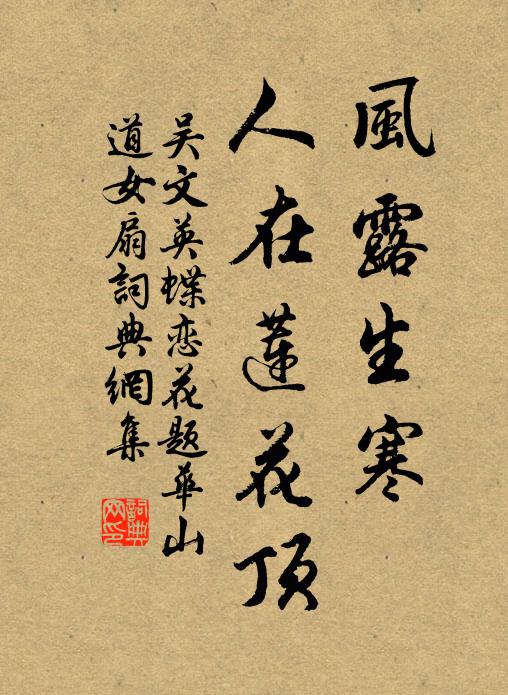 風露生寒
人在蓮花頂
吴文英蝶恋花题華山
道女扇詞典網集
詞典网印